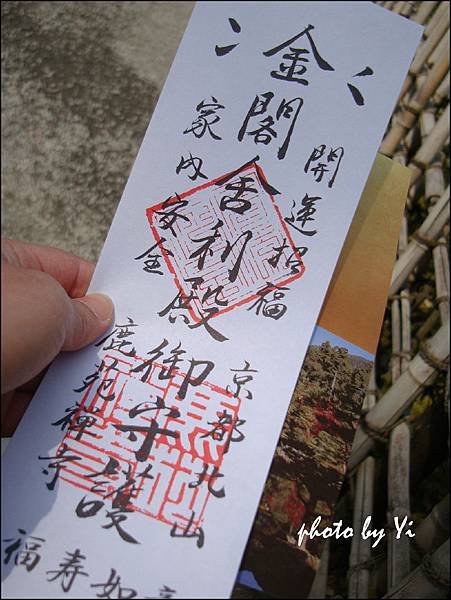 金閣舎利殿御守護
開運招福
家内安全
京都北山
鹿苑禅寺
如
寿
福
photo by Yi